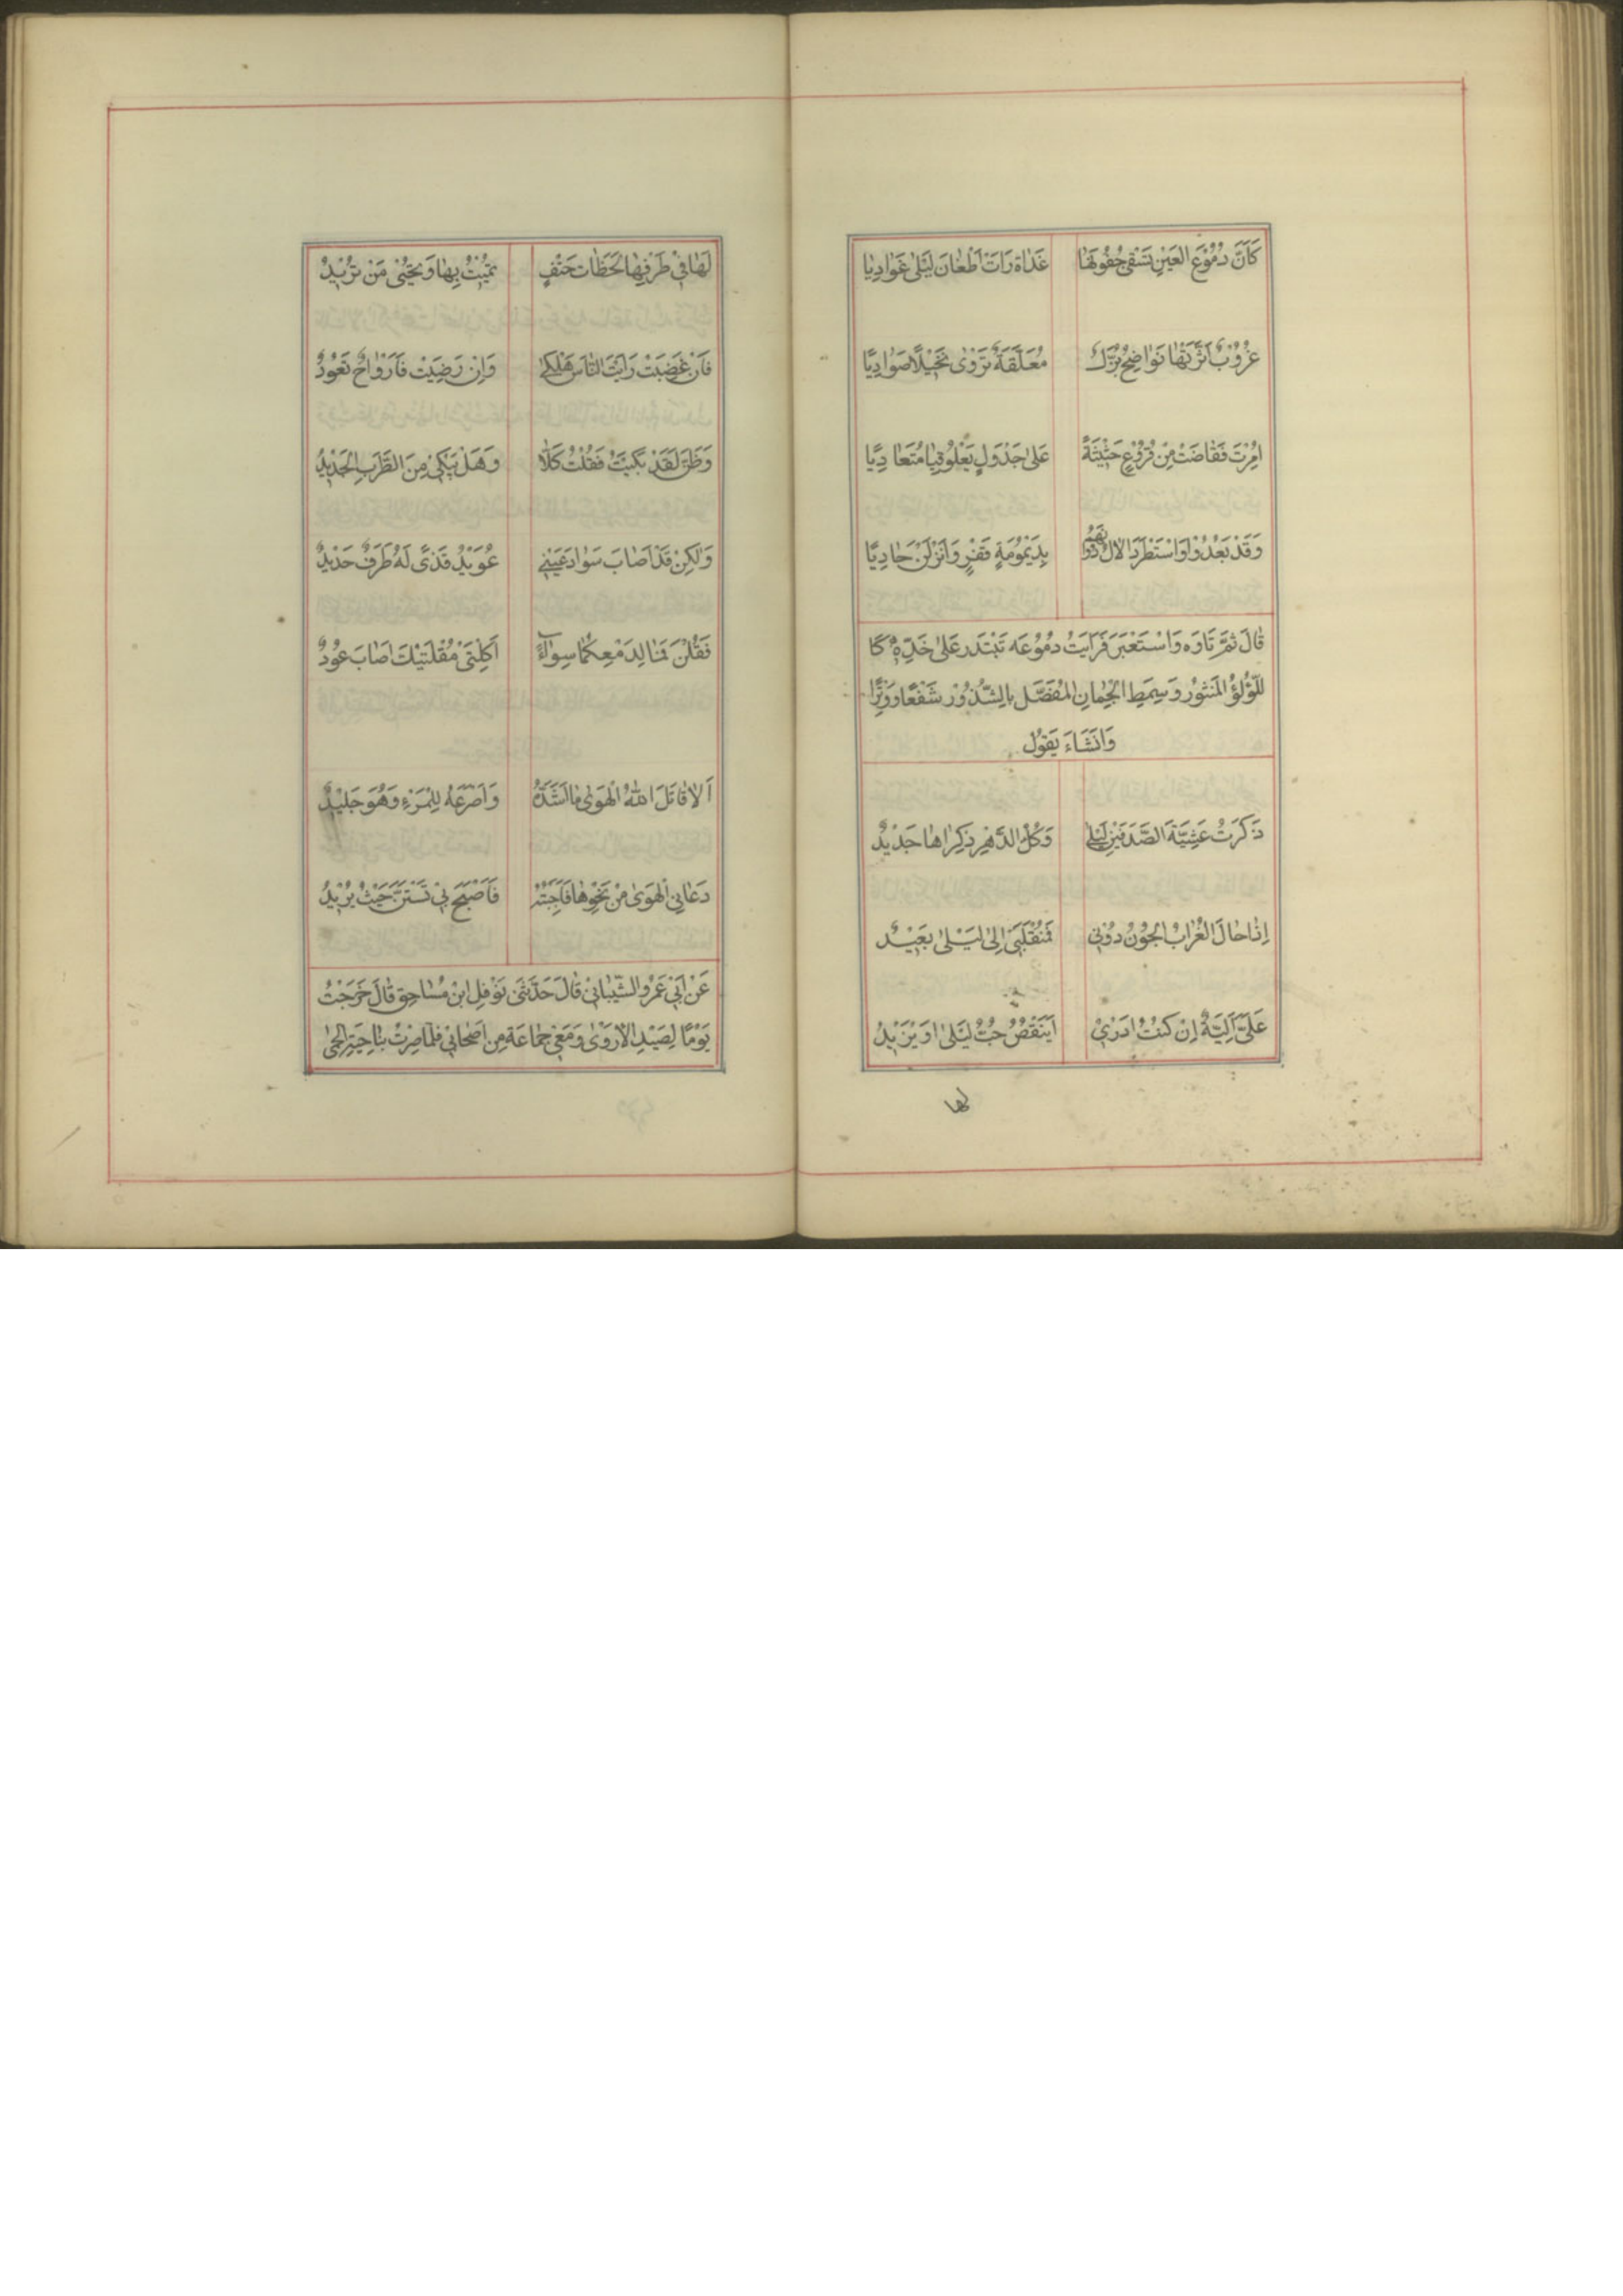 كَاَنَّ دُمُوْعَ العَيْنِ تَسْقِى جُفُونَهَا غَدٰاةَ رَاَتْ اَظْعٰانَ لَيْلٰى غَوٰادِيٰا
غُرُوْبٌ اَثَرَّتْهٰا نَوٰاضِحُ بُزَّلٌ مُعَلَّقَةٌ تَرْوٰى نَخِيْلًا صَوٰادِيًا
اُمِرَّتْ فَفٰاضَتْ مِنْ فُرُوْعٍ حَثِيْثَةً عَلىٰ جَدْوَلٍ يَعْلُو مُتَعٰادِيًا
وَقَدْ بَعُدُوْا وَاسْتَطْرَدَ الاٰلُ دُوْنَهُمْ بِدَيْمُومَةٍ قَفْرٍ وَاَنْزَلْنَ حٰادِيًا
قٰالَ ثمَّ تَاوَه وَاسْتَعْبَرَ فَرَايَتُ دُمُوْعَه تَبْتَدر عَلىٰ خَدِّهٖ كَا
للّؤلُؤِ المَنثوْر وَسِمَطِ الْجُمٰانِ المُفَصَّل بالِشّذُوْر شَفْعًا وَوِتْرًا
وَانَشَاءَ يَقوُل
ذَكَرَتُ عَشِيَّةَ الصَّدَفَيْنِ لَيْلىٰ وَكُلُّ الدَّهْرِ ذِكرٰاهٰا جَدْيدٌ
اِذٰا حٰالَ الغُرٰابُ الجَوْنُ دوُنِي فَمُنْقَلَبَىْ اِلىٰ لَيْلىٰ بَعَيْدٌ
عَلَىَّ اَلِيَّةٌ اِنْ كنتُ اَدْرَىْ اَيَنْقُصُ حُبُّ لَيْلىٰ اَوْ يَزْيدُ
لها
لَهَا فِىْ طَرْفِهٰا لَحَظٰاتُ حَتْفٍ تمُيْتُ بِهٰا وَتُحْيِىْ مَنْ تُرْيدُ
فَاِنْ غَضِبَتْ رَاَيْتَ النّٰاسَ هَلْكىٰ وَاِنْ رَضِيَتْ فَاَرْوٰاحٌ تَعُوْدُ
وَظَنَّ لَقَدْ بَكَيْتَ فَقُلْتُ كَلّٰا وَهَلْ يَبْكِىْ مِنَ الطَّرَبِ الجَلْيدُ
وَلٰكِنْ قَدْ اَصٰابَ سَوٰادَ عَيْنىٖ عُوَيْدُ قَذًى لَهُ طَرَفٌ حَدْيدٌ
فَقُلْنَ فَمٰا لِدَمْعِكُمٰا سِوٰاءٌ اَكِلْتَىْ مُقْلَتَيْكَ اَصٰابَ عوُدٌ
اَلاٰ قٰاتَلَ اللّٰهُ الْهَوٰى مٰا اَشَدَّهُ وَاَصْرَعَهُ لِلْمَرْءِ وَهُوَ جَليْدٌ
دَعٰانِى الْهَوٰى مِنْ نَحْوِهٰا فَاَجَبْتُهُ فَاَصْبَحَ بِىْ يَسْتَنُّ حَيْثُ يُرْيدُ
عَنْ اَبْىِ عَمْرُو الشّيْبٰانِىْ قٰالَ حَدَّثَنَى نَوْفِلِ ابْنِ مُسٰاحِقٍ قٰالَ خَرَجْتُ
يَوْمًا لِصَيْدِ الاَرْوٰى وَمَعَىْ جَمٰاعَة مِن اَصْحٰابِىْ فَلمّٰا صِرْتُ بنٰاحِيَةِ الحِمىٰ